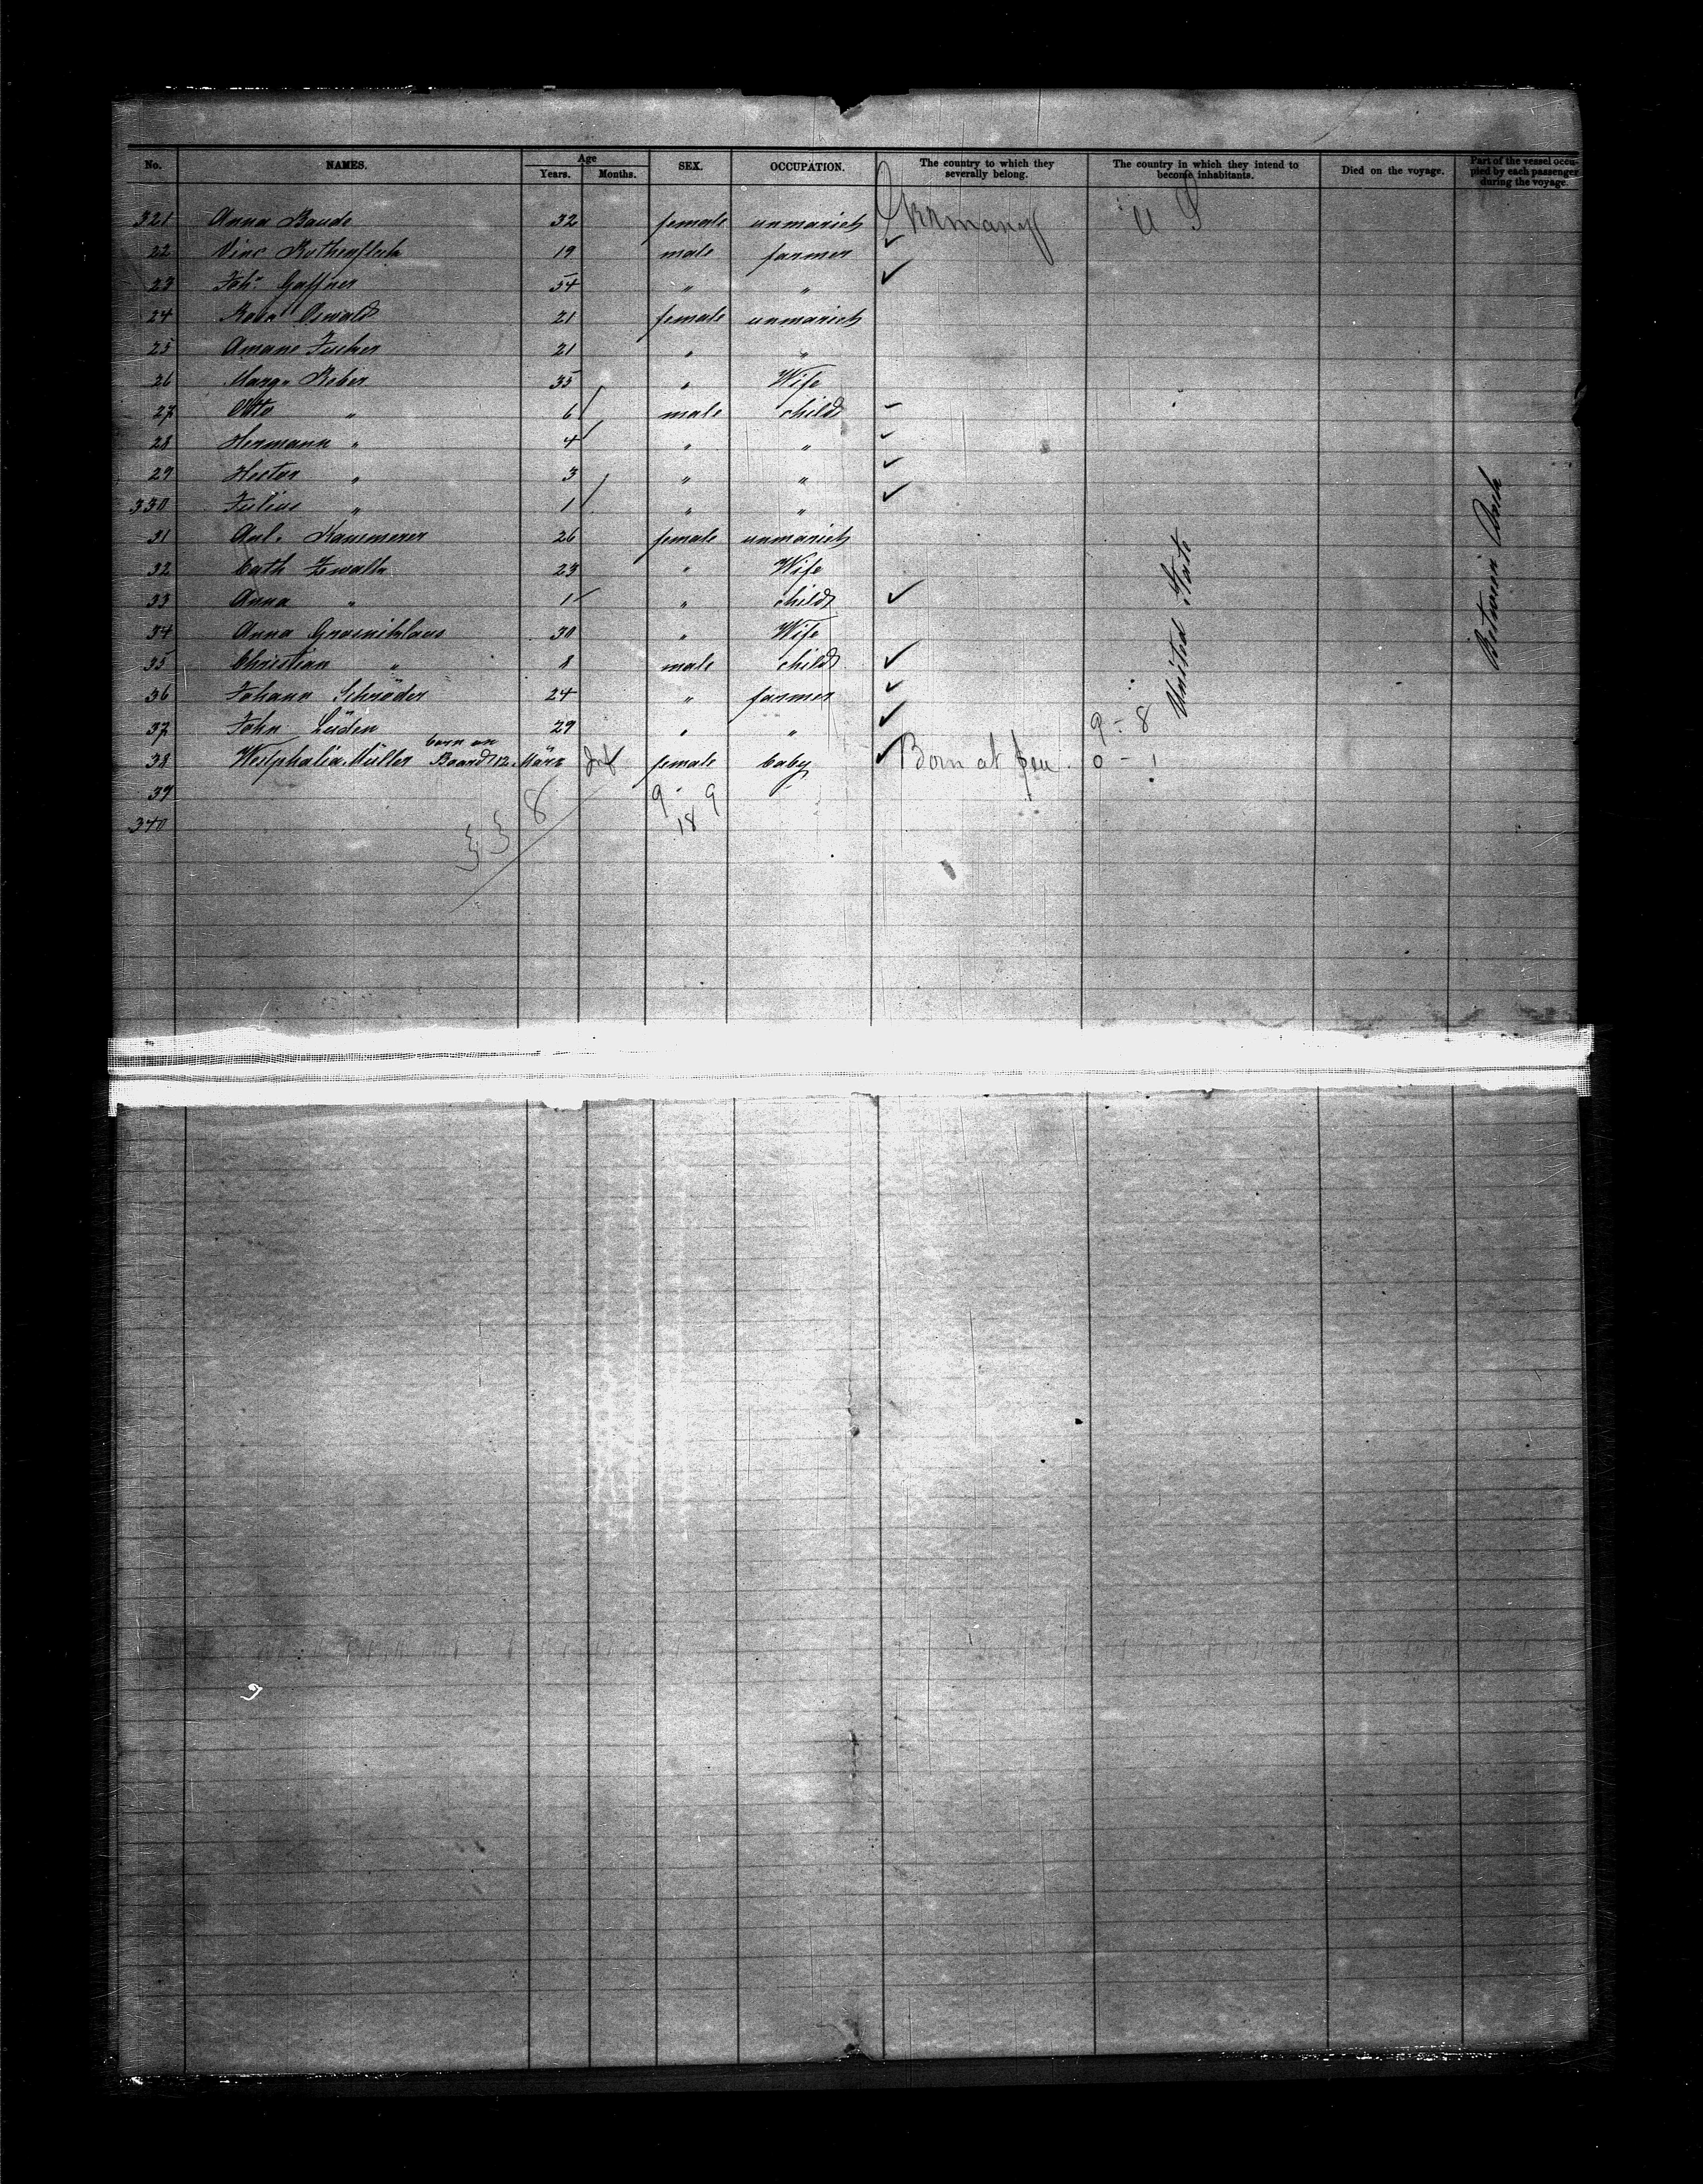 No. NAMES. Age Years. Months. SEX. OCCUPATION. The country to which they severally belong. The country in which they intend to become inhabitants. Died on the voyage. Part of the vessel occupied by each passenger during the voyage.
321 Anna Baude 32 female unmarich Germany U S
22 19 male farmer ✓
23 Joh. Gaffner 54 " " ✓
24 Oswald 21 female unmarich
25 21 " "
26 Marg. Reber 35 " Wife
27 Otto " 6 male child
28 Hermann " 4 " " ✓
29 Hector " 3 " " ✓
330 Julius " 1 " " ✓
31 26 female unmarich
32 Cath 23 " Wife
33 Anna " 1 " child ✓
34 Anna 30 " Wife
35 Christian " 8 male child ✓
36 Johann Schröder 24 " farmer ✓
37 John Lüden 29 " " ✓ 9 - 8
born on
38 Westphalia Müller Board 12. März Inf female baby ✓ Born at sea 0 - 1
39 9 - 9
340 338 18
United State
Between Deck